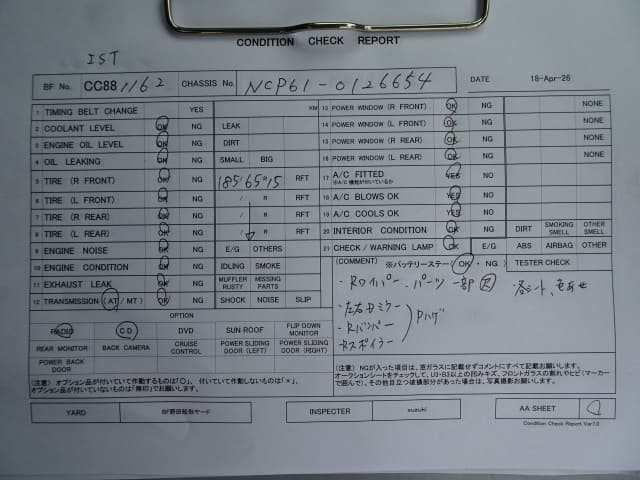 CONDITION CHECK REPORT
IST
BF No. CC88 1162 CHASSIS No. NCP61-0126654 DATE 18-Apr-26
1 TIMING BELT CHANGE YES KM
2 COOLANT LEVEL OK NG LEAK
3 ENGINE OIL LEVEL OK NG DIRT
4 OIL LEAKING OK NG SMALL BIG
5 TIRE (R FRONT) OK NG 185/65R15 RFT
6 TIRE (L FRONT) OK NG / R RFT
7 TIRE (R REAR) OK NG / R RFT
8 TIRE (L REAR) OK NG / R RFT
9 ENGINE NOISE OK NG E/G OTHERS
10 ENGINE CONDITION OK NG IDLING SMOKE
11 EXHAUST LEAK OK NG MUFFLER RUSTY MISSING PARTS
12 TRANSMISSION (AT/MT) OK NG SHOCK NOISE SLIP
OPTION
RADIO CD DVD SUN ROOF FLIP DOWN MONITOR
REAR MONITOR BACK CAMERA CRUISE CONTROL POWER SLIDING DOOR (LEFT) POWER SLIDING DOOR (RIGHT)
POWER BACK DOOR
(注意) オプション品が付いていて作動するものは「○」、付いていて作動しないものは「×」、
オプション品が付いていないものは「無印」でお願いします。
13 POWER WINDOW (R FRONT) OK NG NONE
14 POWER WINDOW (L FRONT) OK NG NONE
15 POWER WINDOW (R REAR) OK NG NONE
16 POWER WINDOW (L REAR) OK NG NONE
17 A/C FITTED YES NO
※A/C 機能が付いているか
18 A/C BLOWS OK YES NO
19 A/C COOLS OK YES NO
20 INTERIOR CONDITION OK NG DIRT SMOKING SMELL OTHER SMELL
21 CHECK / WARNING LAMP OK E/G ABS AIRBAG OTHER
(COMMENT) ※バッテリーステー (OK・NG) TESTER CHECK
・Rワイパー・パーツ一部欠
・各シート、色あせ
・左右ドミラー
・Rバンパー
・Rスポイラー
Pハゲ
(注意) NGが入った項目は、窓ガラスに記載せずコメントにすべて記載お願いします。
オークションシートをチェックして、U3・B3以上の凹みキズ、フロントガラスの割れやヒビ(マーカー
で囲んで)、その他目立つ破損部分があった場合は、写真撮影お願いします。
YARD BF野田船形ヤード INSPECTER suzuki AA SHEET
Condition Check Report Ver7.0